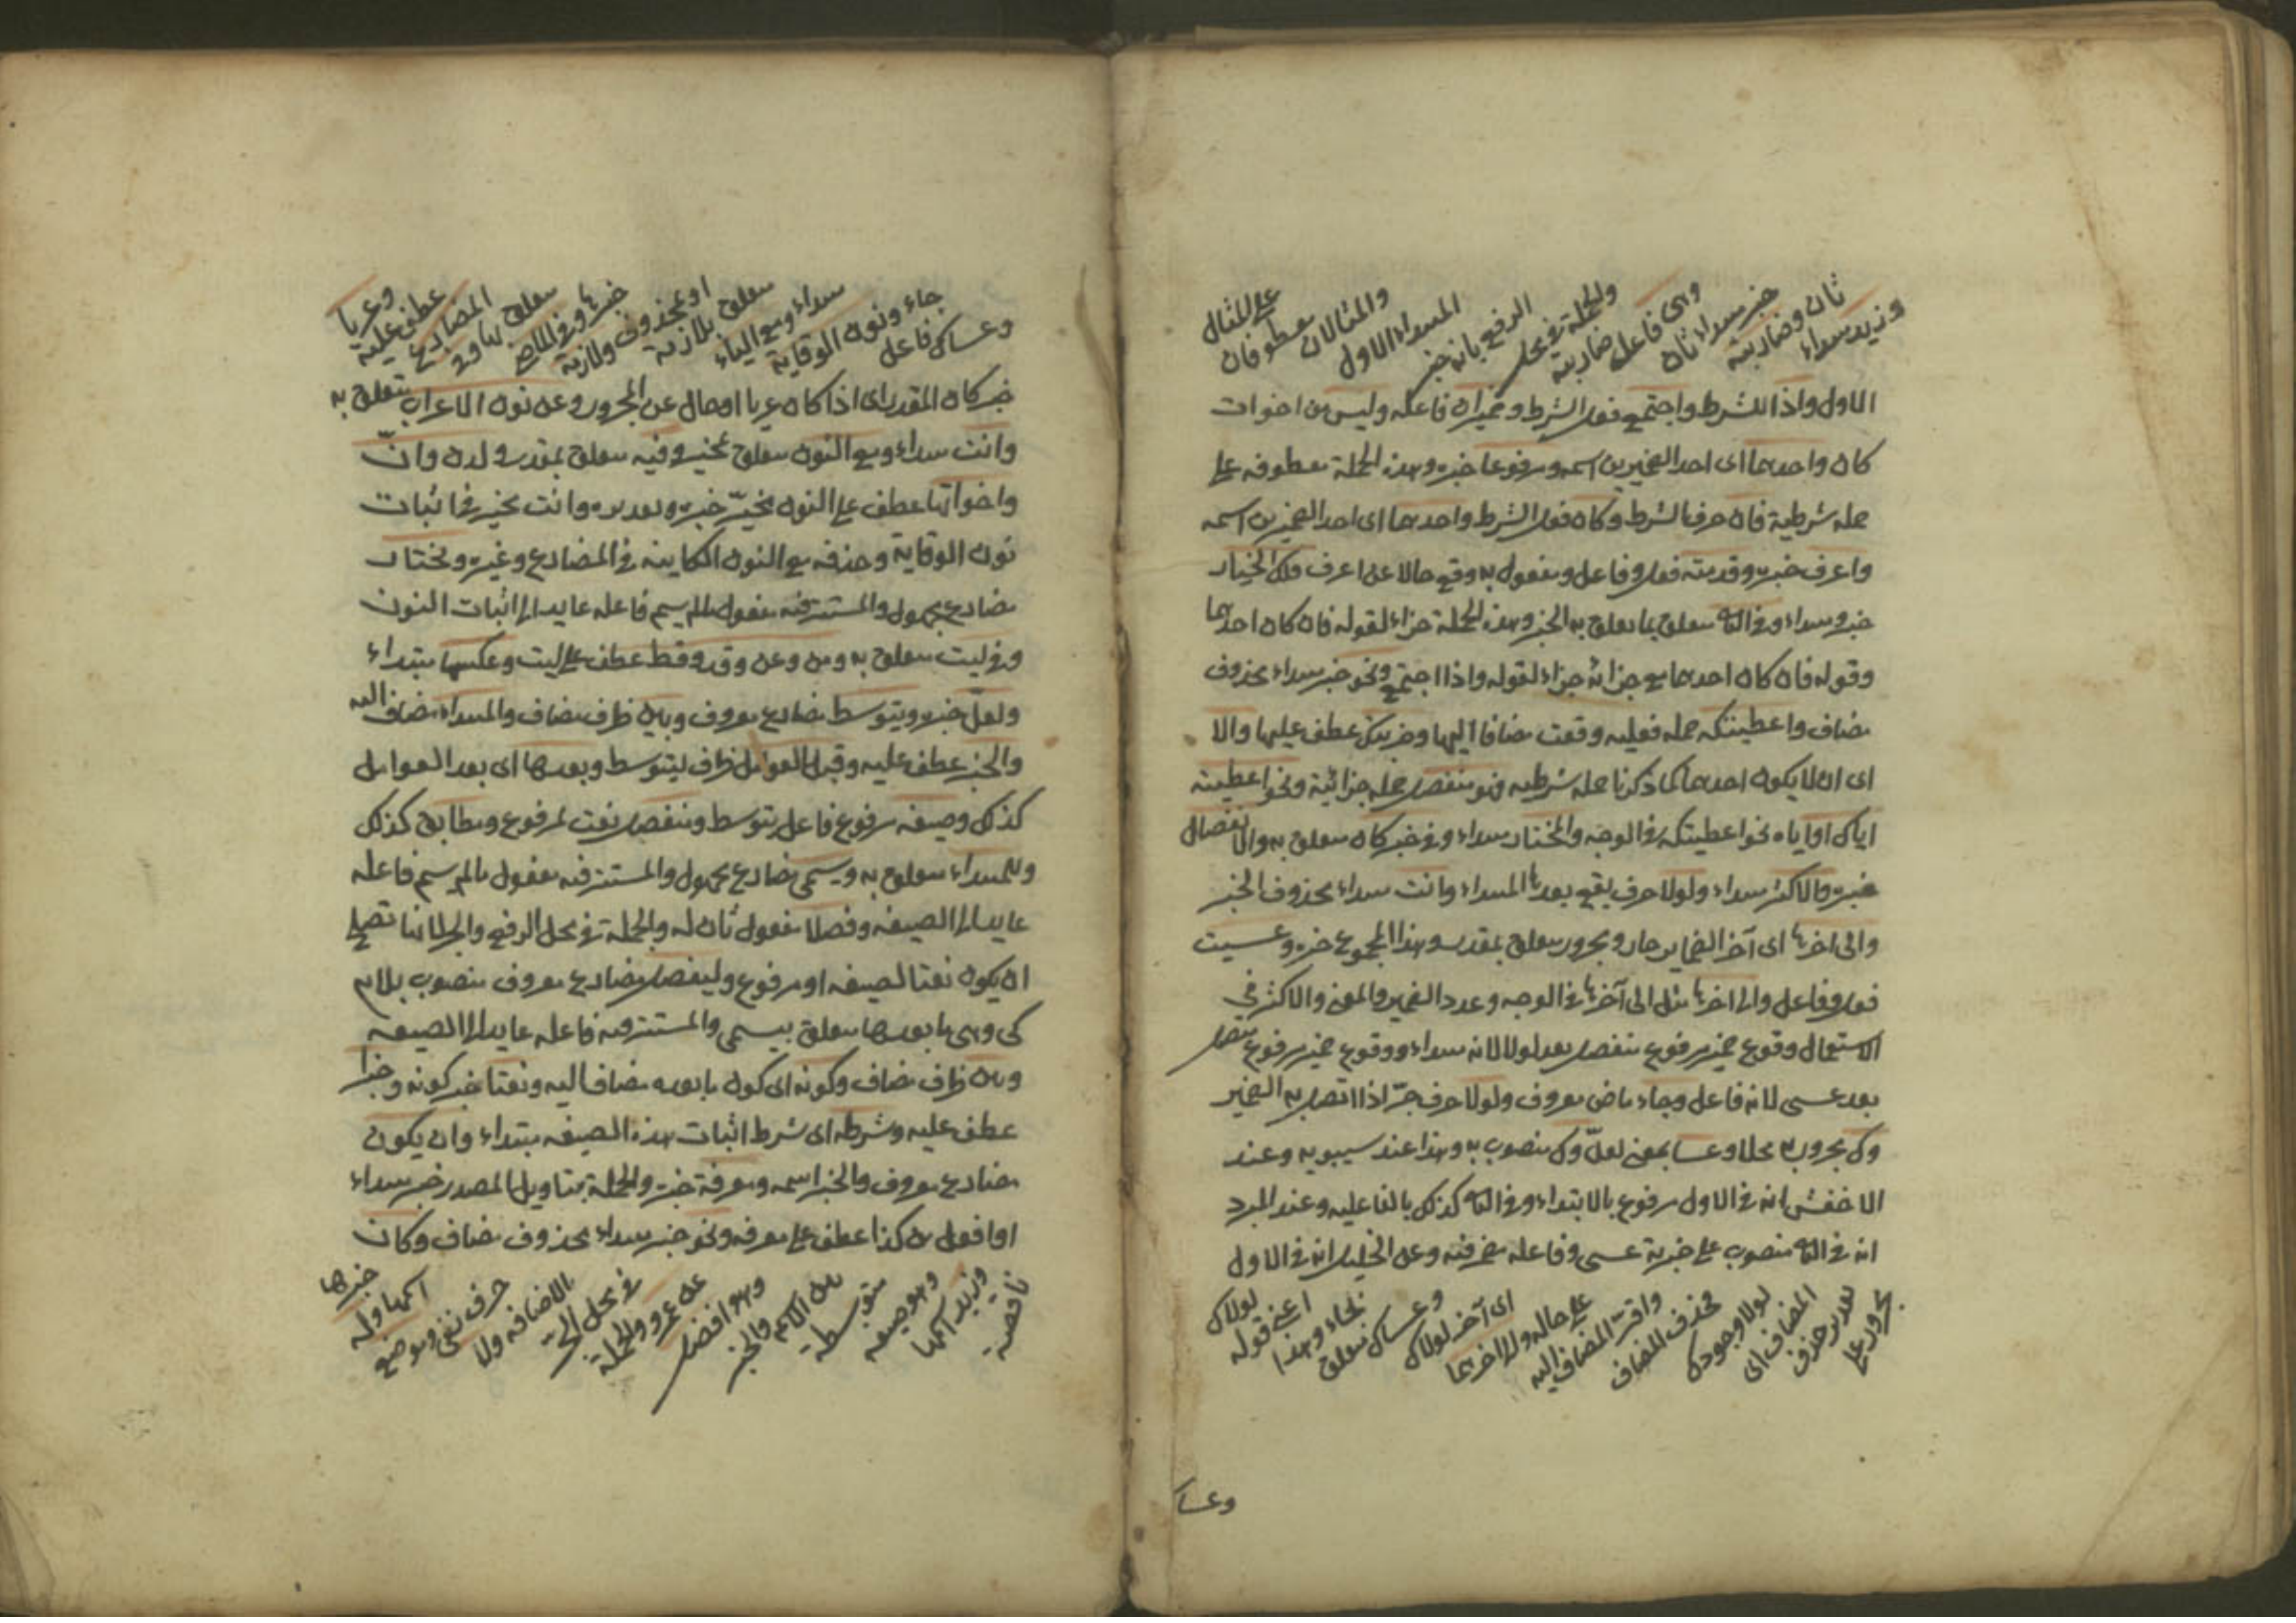 وزيد مبتداء
ثان وضاربته
خبر مبتداء ثان
وهى فاعل ضاربته
والجملة فى محل
الرفع بانه خبر
المبتداء الاول
والمثالان معطوفان
على المثال
الاول واذا للشرط واجتمع فعل الشرط وضميران فاعله وليس من اخوات
كان واحدهما اى احد الضميرين اسمه ومرفوعا خبره وهذه الجملة معطوفه على
جمله شرطية فان حرف الشرط وكان فعل الشرط واحدهما اى احد الضميرين اسمه
واعرف خبره وقدمته فعل وفاعل ومفعول به وقع حالا عن اعرف فلك الخيار
خبر ومبتداء وفى الثانى متعلق بما تعلق به الخبر وهذه الجملة جزاء لقوله فان كان احدهما
وقوله فان كان احدهما مع جزائه جزاء لقوله واذا اجتمع ونحو خبر مبتداء محذوف
مضاف واعطيتكه جمله فعليه وقعت مضافا اليها وضربيك عطف عليها والا
اى ان لا يكون احدهما كما ذكرنا جمله شرطيه فهو منفصل جمله جزائية ونحو اعطيته
اياك او اياه نحو اعطيتكه فى الوجه والمختار مبتداء وفى خبر كان متعلق به والانفصال
خبره والاكثر مبتداء ولولا حرف يقع بعدها المبتداء وانت مبتداء محذوف الخبر
والى اخرها اى آخر الضماير جار ومجرور متعلق بمقدر وهذا المجموع خبره وعسيت
فعل وفاعل والى اخرها مثل الى آخرها فى الوجه وعدد الضمير والمعنى والاكثر فى
الاستعمال وقوع ضمير مرفوع منفصل بعد لولا لانه مبتداء ووقوع ضمير مرفوع متصل
بعد عسى لانه فاعل وجاء ماض معروف ولولا حرف جر اذا اتصل به الضمير
وك مجرور به محلا وعسا بمعنى لعل وك منصوب به وهذا عند سيبويه وعند
الاخفش انه فى الاول مرفوع بالابتداء وفى الثانى كذلك بالفاعليه وعند المبرد
انه فى الثانى منصوب على خبرية عسى وفاعله مضمر فيه وعن الخليل انه فى الاول
مجرور على
تقدير حذف
المضاف اى
لولا وجودك
فحذف المضاف
واقر المضاف اليه
على حاله والى اخرهما
اى آخر لولاك
وعساك متعلق
بجاء وهذا
اعنى قوله
لولاك
وعسا
وعساك فاعل
جاء ونون الوقاية
مبتداء ومع الياء
متعلق بلازمة
او بمحذوف ولازمة
خبرها وفى الماضى
متعلق بها وفى
المضارع
عطف عليه
وعريا
خبر كان المقدر اى اذا كان عريا او حال عن المجرور وعن نون الاعراب يتعلق به
وانت مبتداء ومع النون متعلق بمخير وفيه متعلق بمقدر ولدن وان
واخواتها عطف على النون مخير خبره وتقديره وانت مخير فى اثبات
نون الوقاية وحذفه مع النون الكاينه فى المضارع وغيره ويختار
مضارع مجهول والمستتر فيه مفعول ما لم يسم فاعله عايد الى اثبات النون
وفى ليت متعلق به ومن وعن وقد وقط عطف على ليت وعكسها مبتداء
ولعل خبره ويتوسط مضارع معروف وبين ظرف مضاف والمبتداء مضاف اليه
والخبر عطف عليه وقبل العوامل ظرف ليتوسط وبعدها اى بعد العوامل
كذلك وصيغه مرفوع فاعل يتوسط ومنفصل نعت لمرفوع ومطابق كذلك
وللمبتداء متعلق به ويسمى مضارع مجهول والمستتر فيه مفعول ما لم يسم فاعله
عايد الى الصيغه وفصلا مفعول ثان له والجملة فى محل الرفع والجر لانها تصلح
ان يكون نعتا لصيغه او مرفوع وليفصل مضارع معروف منصوب بلام
كى وهى ما بعدها متعلق بيسمى والمستتر فيه فاعله عايد الى الصيغه
وبين ظرف مضاف وكونه اى كون ما بعده مضافا اليه ونعتا خبر كونه وخبرا
عطف عليه وشرطه اى شرط اثبات هذه الصيغه مبتداء وان يكون
مضارع معروف والخبر اسمه ومعرفة خبره والجملة بتاويل المصدر خبر مبتداء
او افعل من كذا عطف على معرفه ونحو خبر مبتداء محذوف مضاف وكان
ناقصه
وزيد اسمها
وهو صيغه
متوسطه
بين الاسم والخبر
وهو افضل
من عمرو والجملة
فى محل الجر
بالاضافه ولا
حرف نفى وموضع
اسمها وله
خبرها